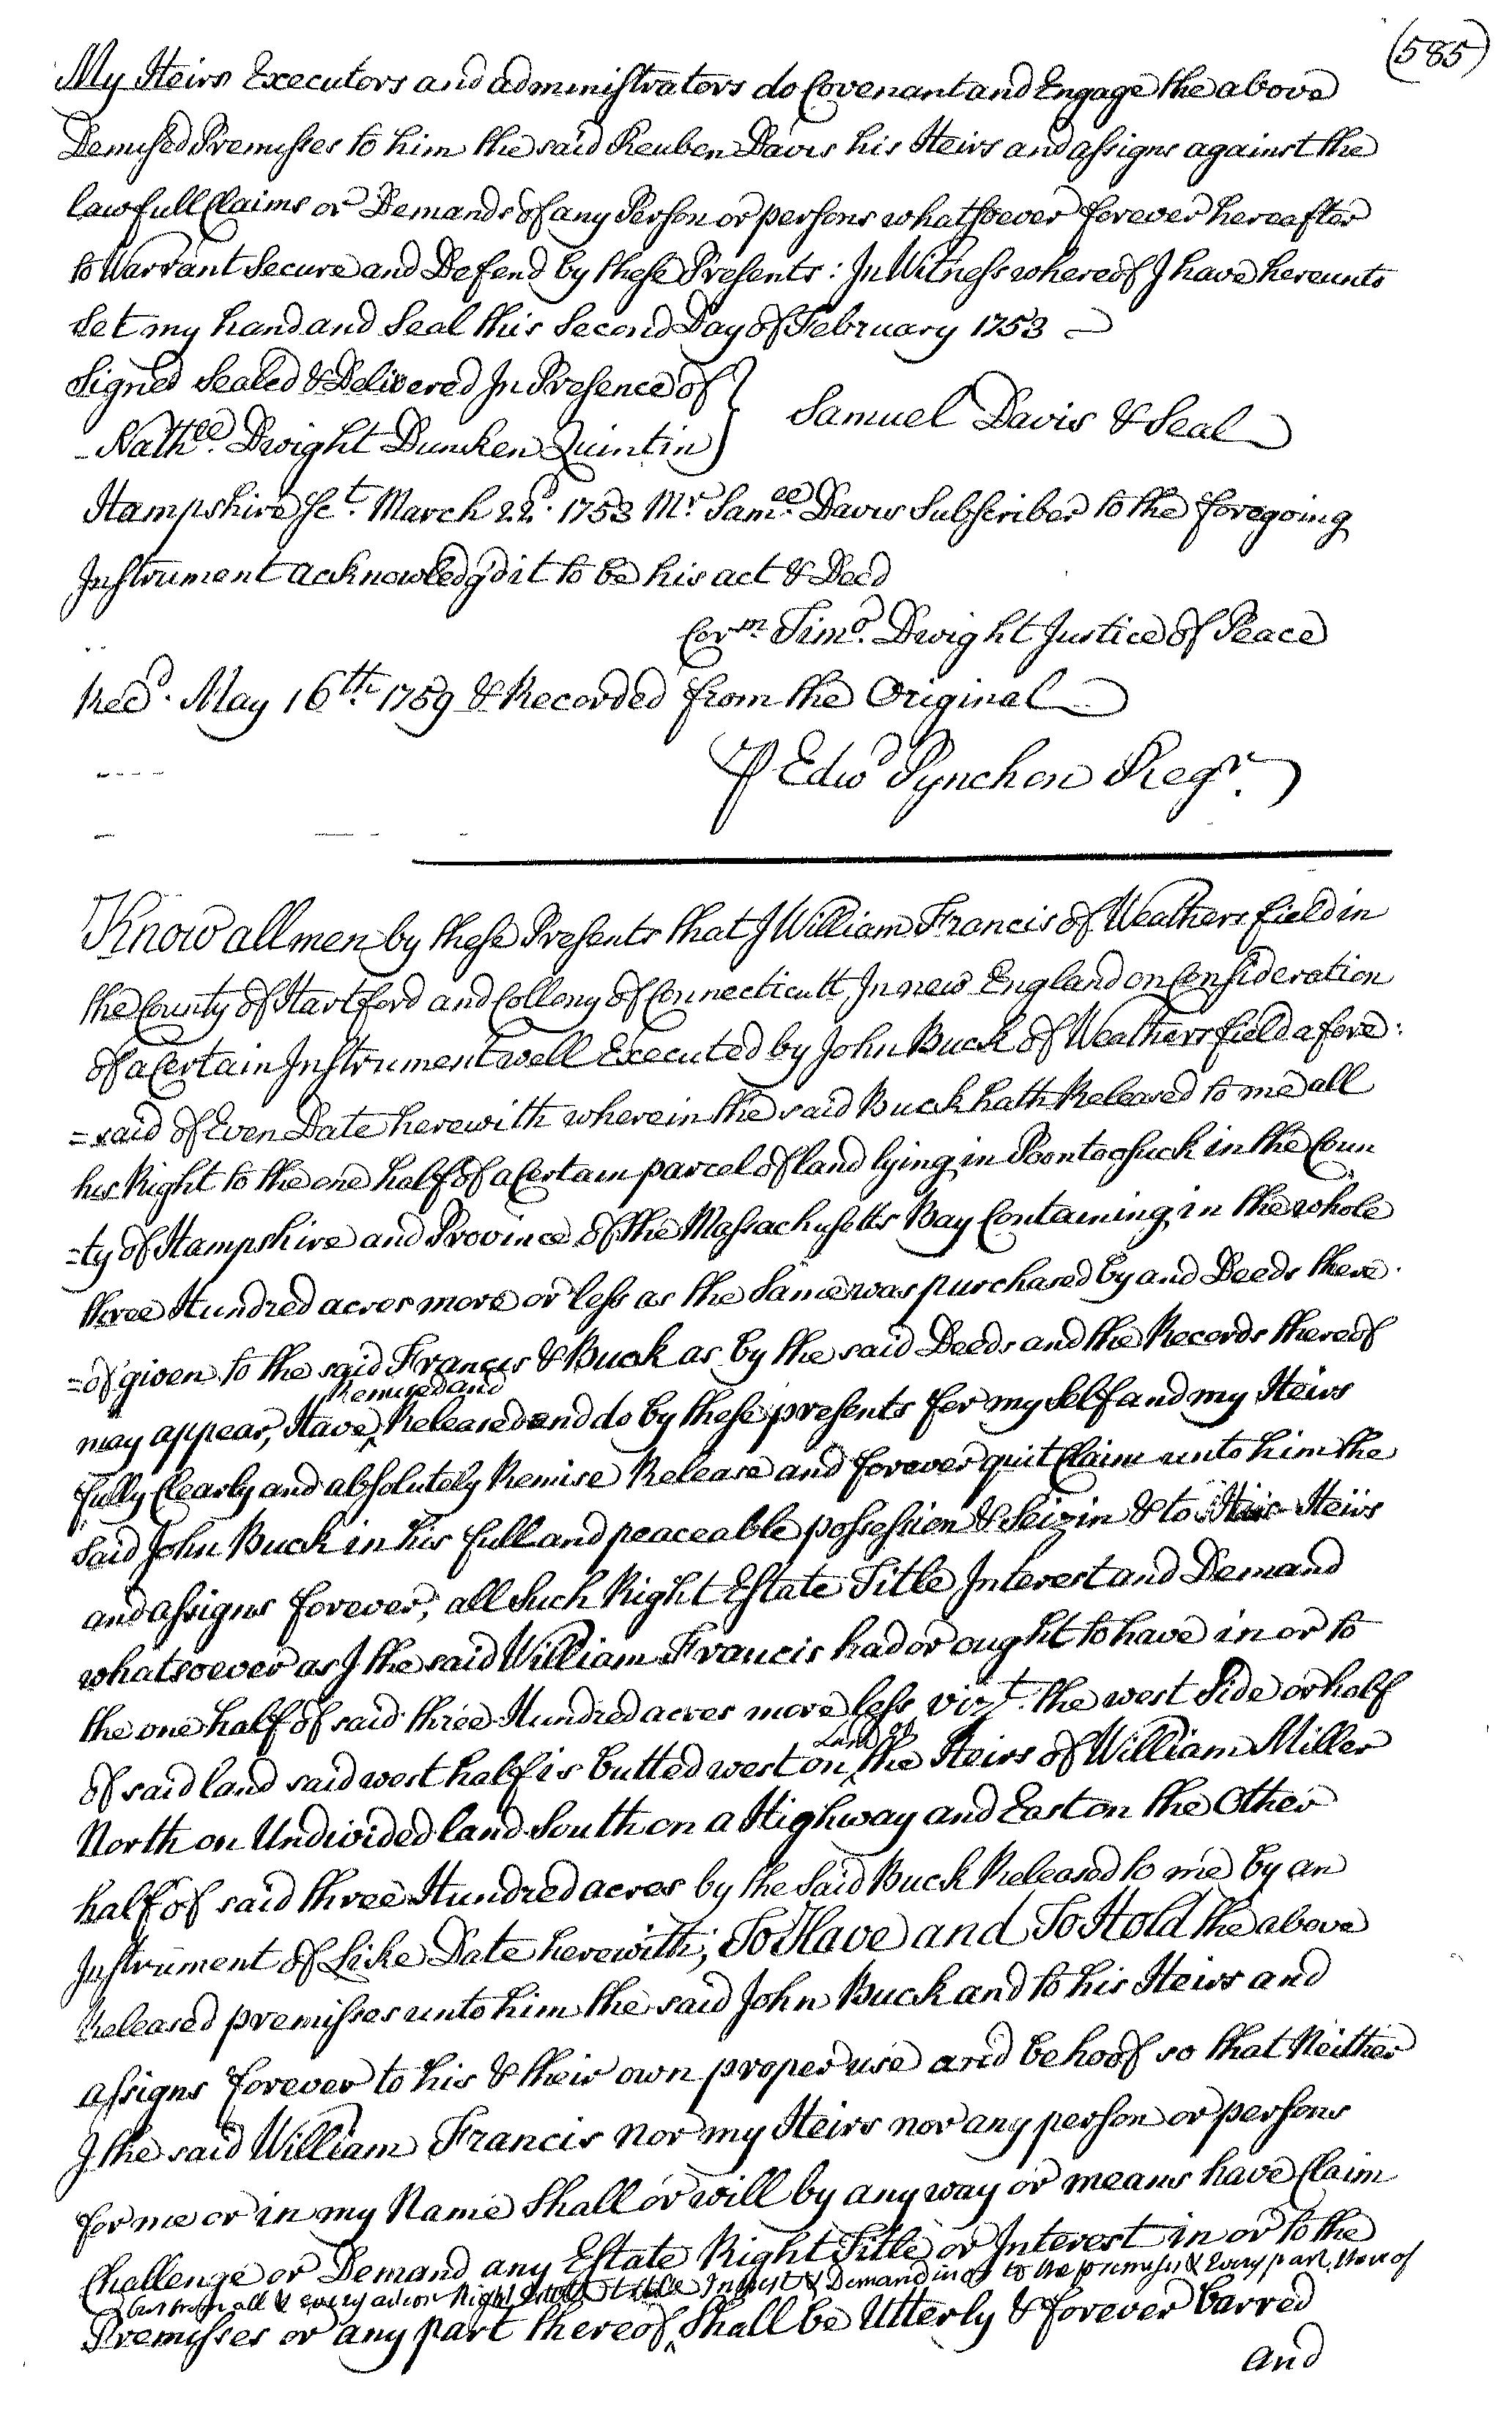 (585)
My Heirs Executors and administrators do Covenant and Engage the above
Demised Premisses to him the said Reuben Davis his Heirs and assigns against the
lawfull Claims or Demands of any Person or persons whatsoever forever hereafter
to Warrant Secure and Defend by these Presents: In Witness whereof I have hereunto
Set my hand and Seal this Second Day of February 1753
Signed Sealed & Delivered In Presence of
Samuel Davis & Seal
Nathll. Dwight Duncken Quintin
Hampshire Sct. March 22d. 1753 Mr Samll. Davis Subscriber to the foregoing
Instrument acknowledg'd it to be his act & Deed
Corm Timo. Dwight Justice of Peace
Recd. May 16th. 1759 & Recorded from the Original
P Edwd Pynchon Regr.
Know all men by these Presents that I William Francis of Weathersfield in
the County of Hartford and Collony of Connecticutt In new England on Consideration
of a Certain Instrument well Executed by John Buck of Weathersfield afore:
=said of Even Date herewith wherein the said Buck hath Released to me all
his Right to the one half of a Certain parcel of land lying in Poontoosuck in the Coun
=ty of Hampshire and Province of the Massachusetts Bay Containing in the whole
three Hundred acres more or less as the Same was purchased by and Deeds there
=of given to the said Francis & Buck as by the said Deeds and the Records thereof
Remised and
may appear, Have Released and do by these presents for my Self and my Heirs
fully Clearly and absolutely Remise Release and forever quit Claim unto him the
said John Buck in his full and peaceable possession & Seizin & to Heirs
and assigns forever, all Such Right Estate Title Interest and Demand
whatsoever as I the said William Francis had or ought to have in or to
the one half of said three Hundred acres more less vizt. the west Side or half
Land of
of said land said west half is butted west on the Heirs of William Miller
North on Undivided land South on a Highway and East on the Other
half of said three Hundred acres by the Said Buck Released to me by an
Instrument of Like Date herewith; To Have and To Hold the above
Released premisses unto him the said John Buck and to his Heirs and
assigns forever to his & their own proper use and behoof so that Neither
I the said William Francis nor my Heirs nor any person or persons
for me or in my Name Shall or will by any way or means have Claim
Challenge or Demand any Estate Right Title or Interest in or to the
but from all & every action Right Estate Title Interest & Demand in or to the premisses & Every part thereof
Premisses or any part thereof Shall be Utterly & forever barred
and